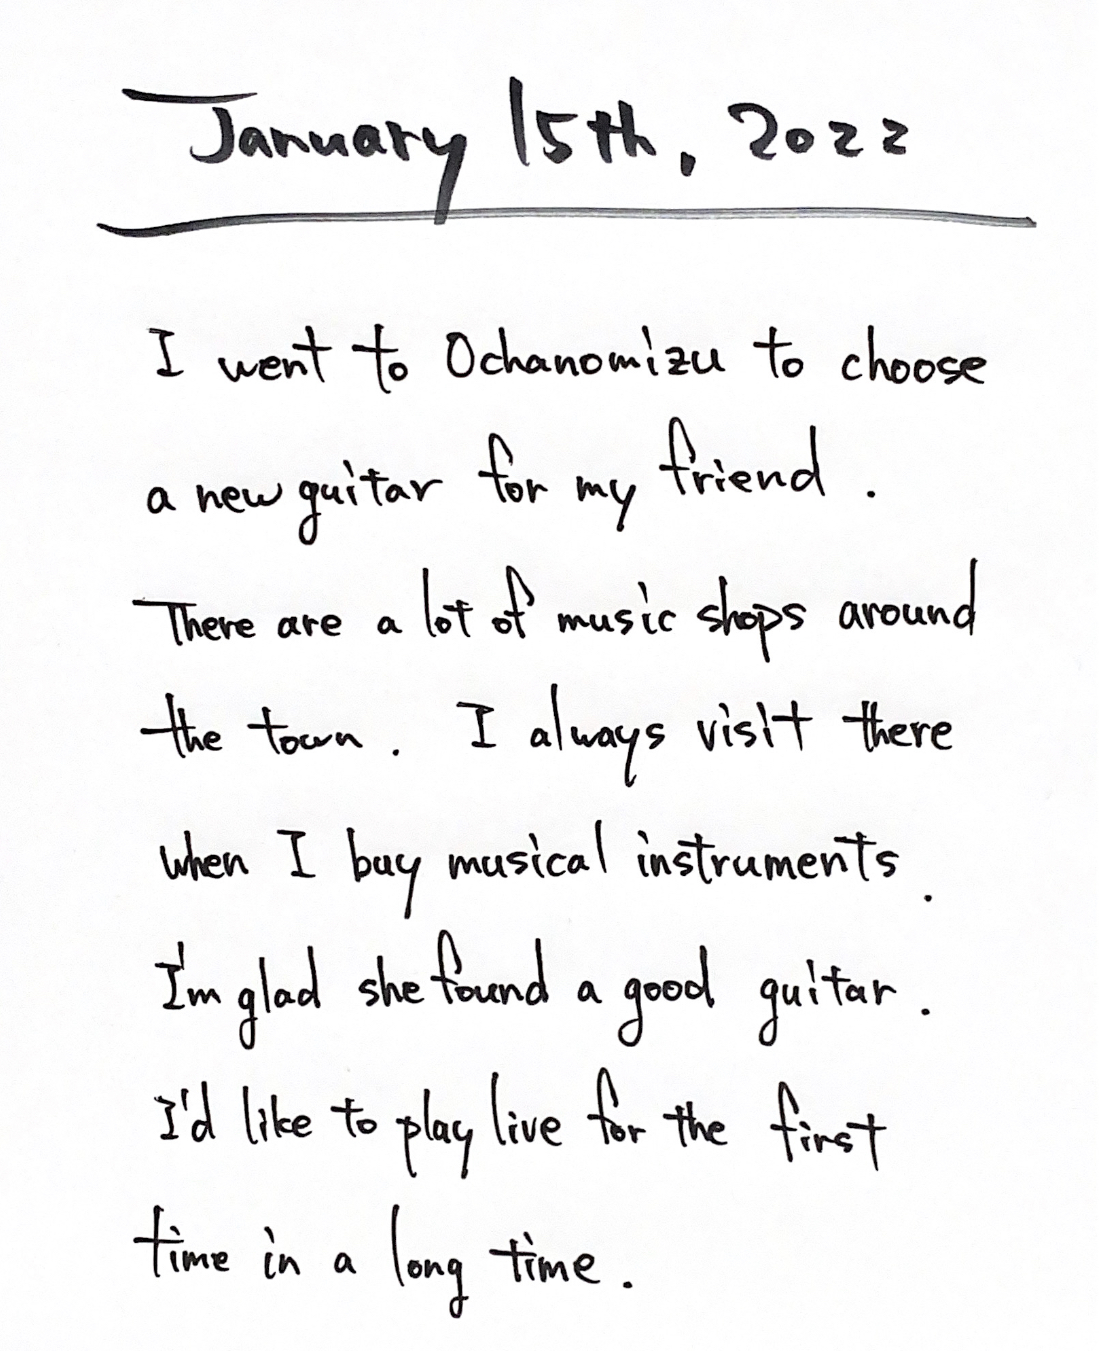 January 15th, 2022
I went to Ochanomizu to choose
a new guitar for my friend.
There are a lot of music shops around
the town. I always visit there
when I buy musical instruments.
I'm glad she found a good guitar.
I'd like to play live for the first
time in a long time.